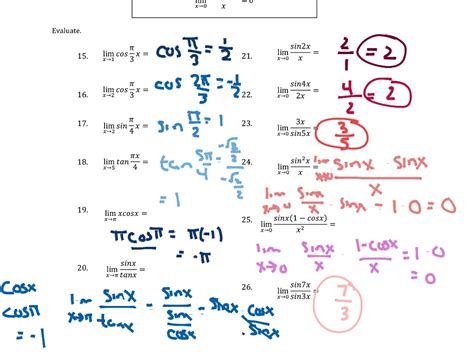 lim x→0 x = 0
Evaluate.
15. lim x→1 cos π/3 x = cos π/3 = 1/2
16. lim x→2 cos π/3 x = cos 2π/3 = -1/2
17. lim x→2 sin π/4 x = sin π/2 = 1
18. lim x→5 tan πx/4 = tan 5π/4 = -√2/2 / -√2/2
= 1
19. lim x→π xcosx =
π cosπ = π(-1)
= -π
20. lim x→π sinx/tanx =
cosx
cosπ
= -1
lim x→π sinx/tanx = sinx / sinx/cosx = sinx · cosx/sinx
21. lim x→0 sin2x/x = 2/1 = 2
22. lim x→0 sin4x/2x = 4/2 = 2
23. lim x→0 3x/sin5x = 3/5
24. lim x→0 sin²x/x = lim x→0 sinx · sinx / x
lim x→0 sinx/x · sinx = 1·0 = 0
25. lim x→0 sinx(1 − cosx)/x² =
lim x→0 sinx/x · 1-cosx/x = 1·0
= 0
26. lim x→0 sin7x/sin3x = 7/3